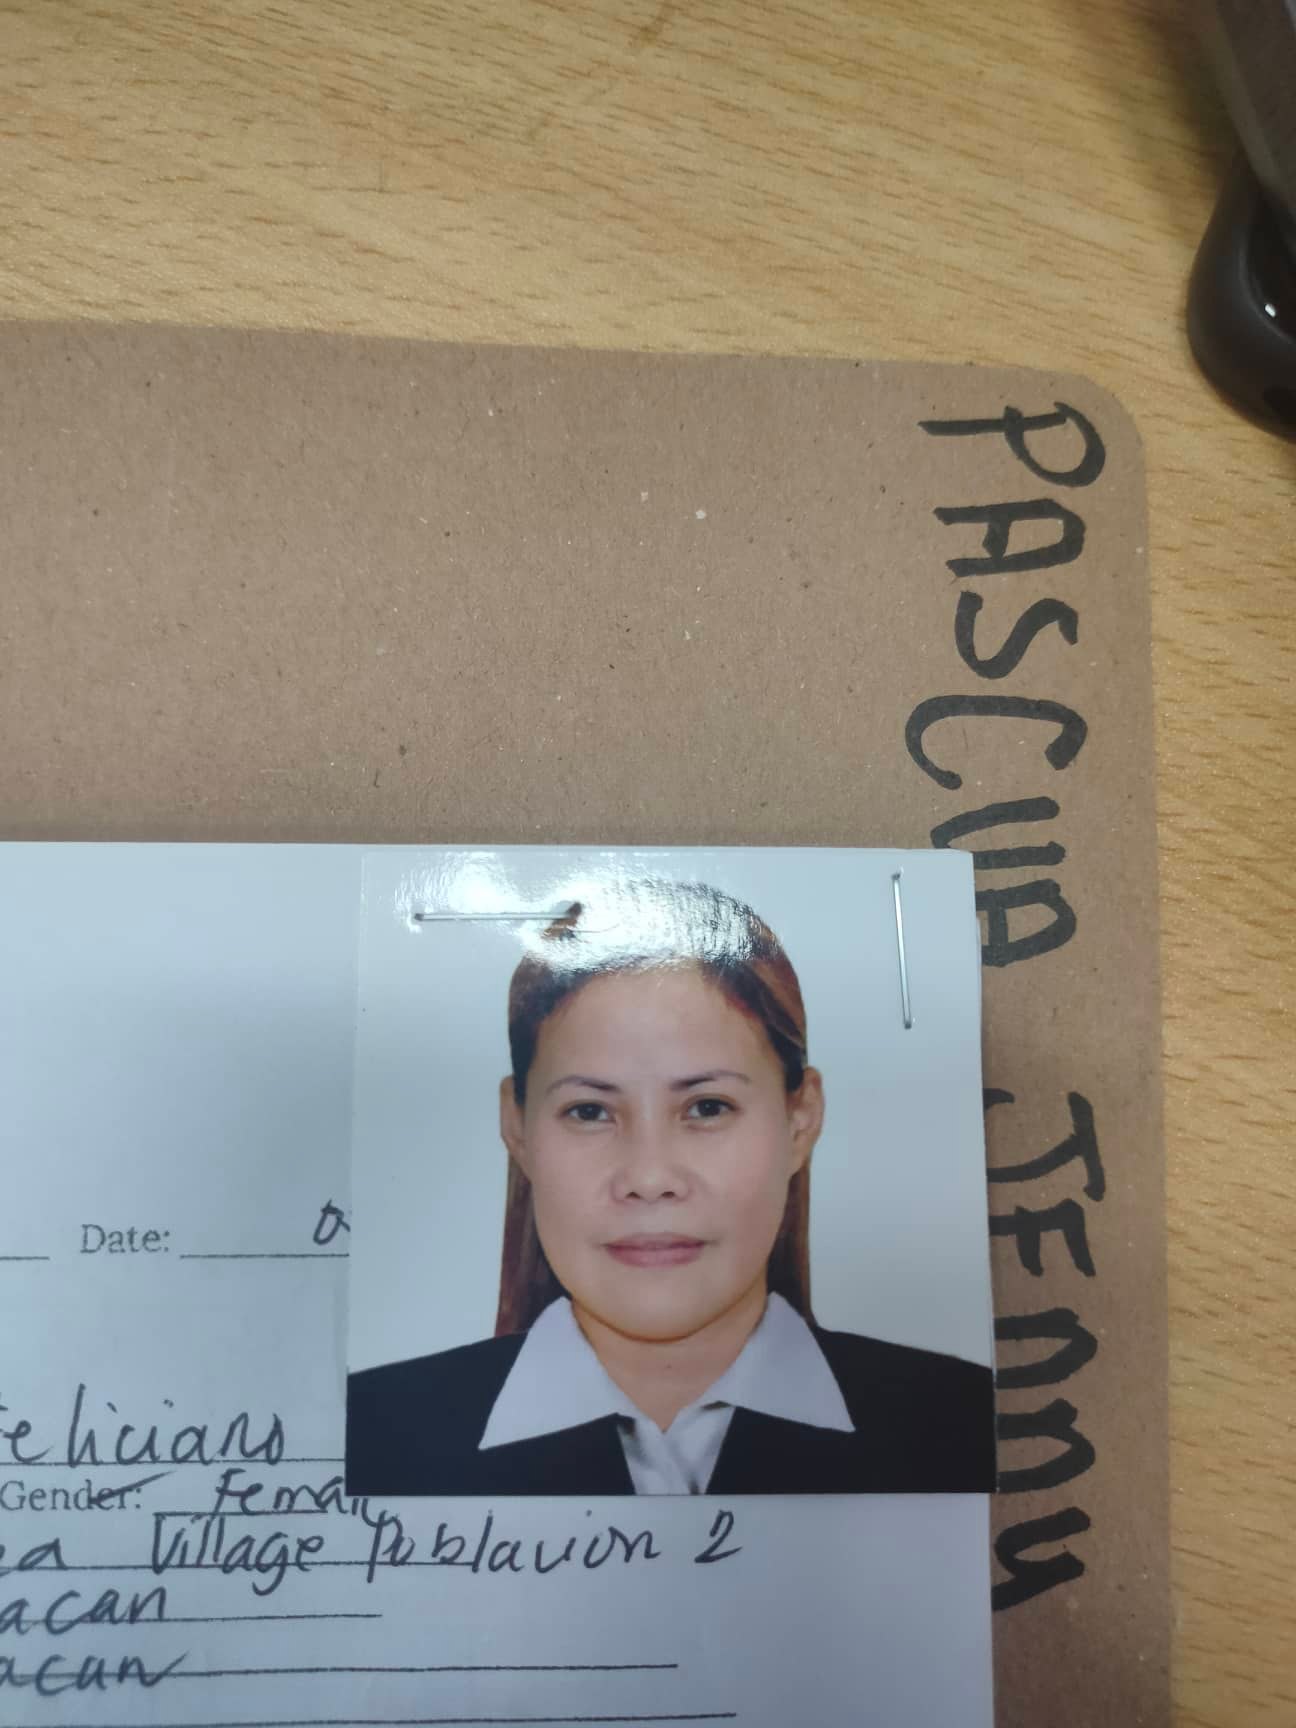 PASCUA JENNY
Date:
feliciano
Gender: Female
Village Poblacion 2
acan
acan